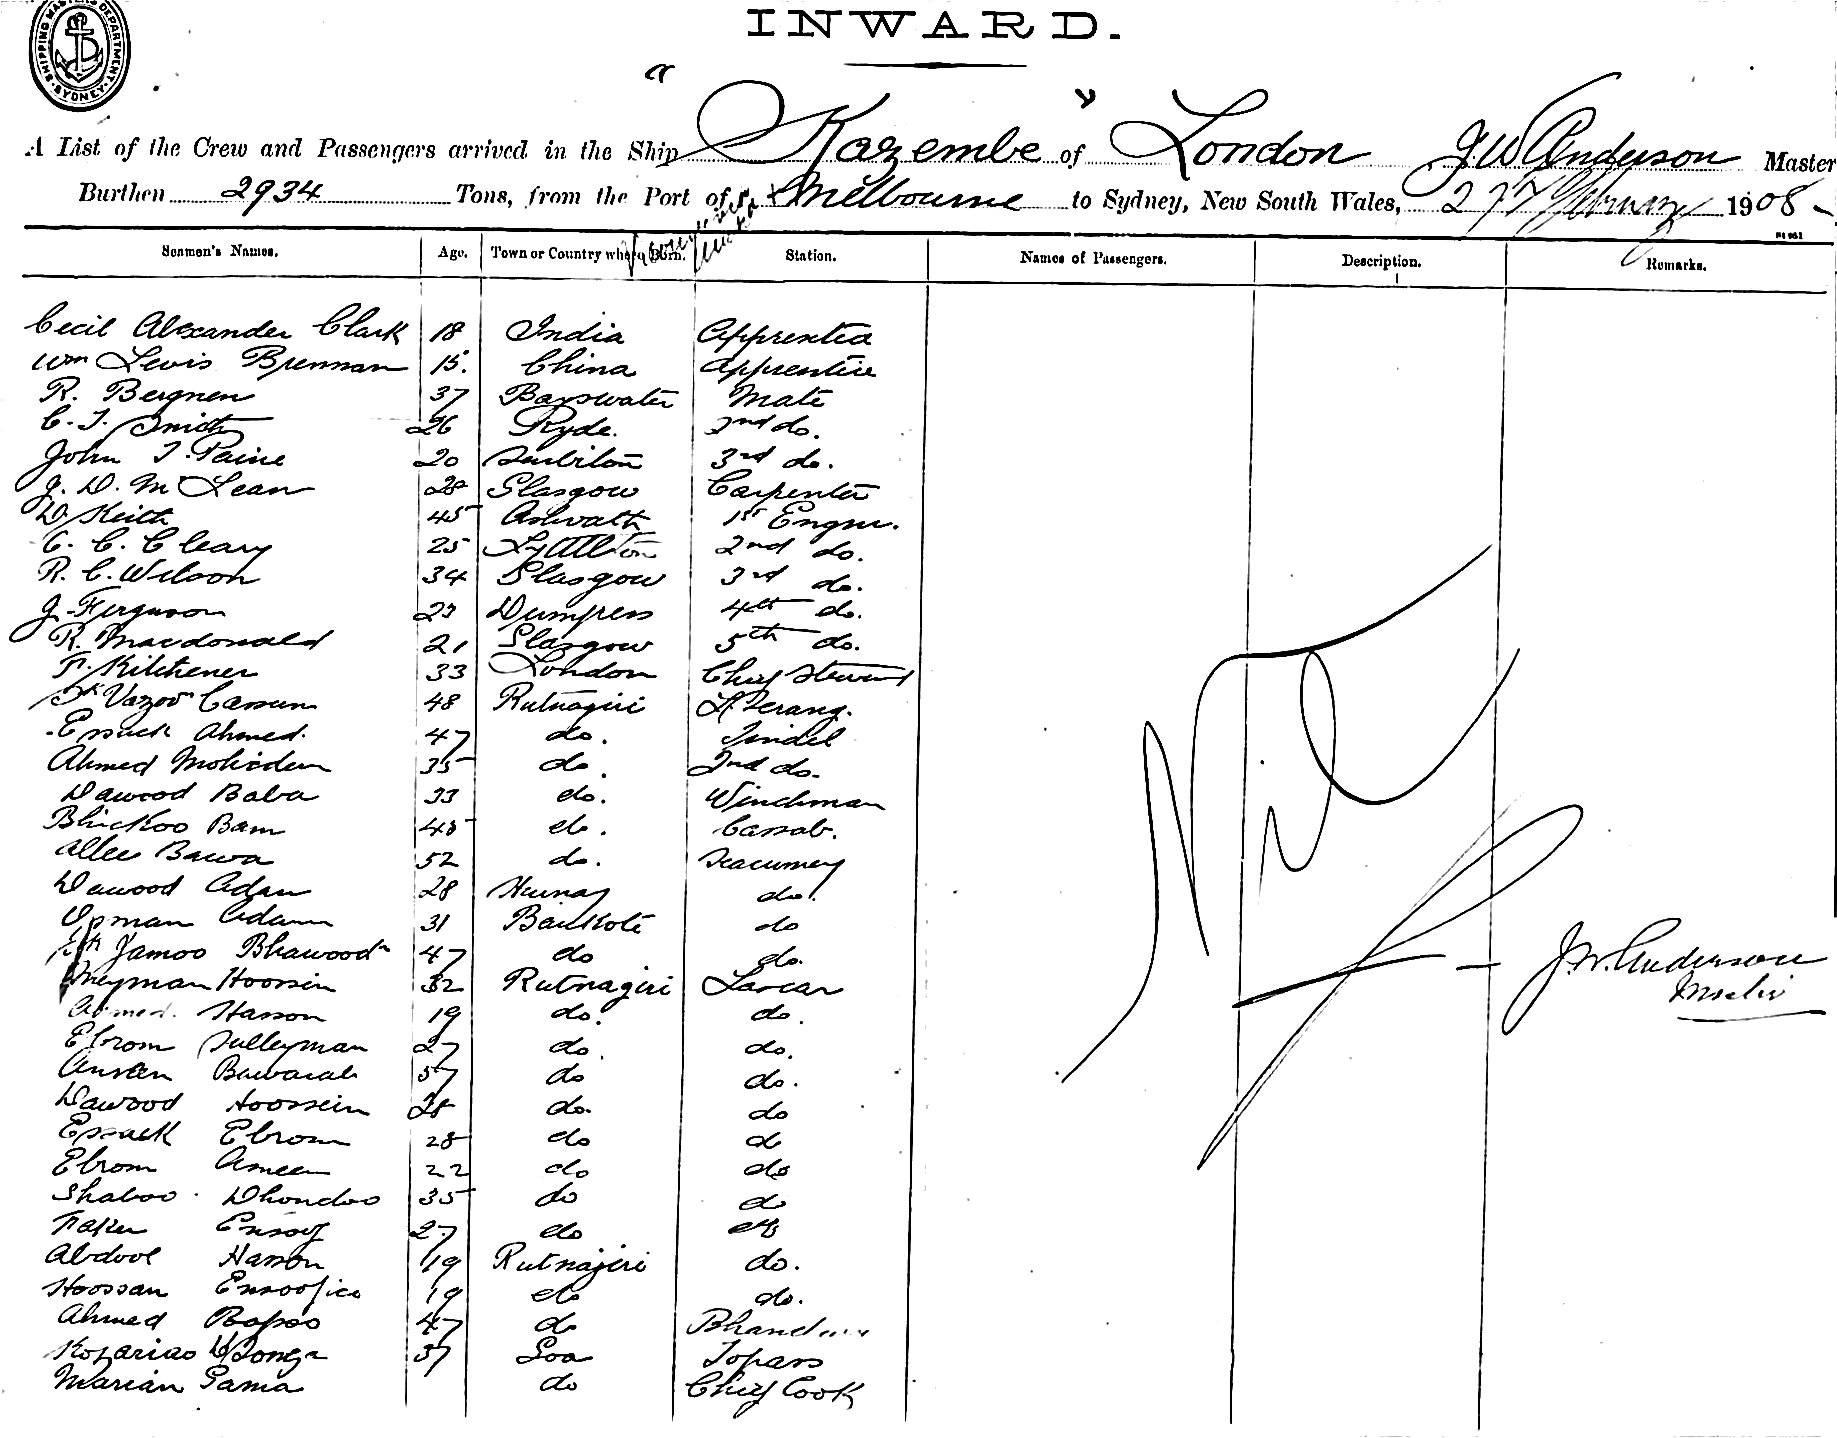 SHIPPING MASTERS DEPARTMENT SYDNEY
INWARD.
A List of the Crew and Passengers arrived in the Ship "Kazembe" of London J W Anderson Master
Burthen 2934 Tons, from the Port of Melbourne to Sydney, New South Wales, 27 February 1908
Seamen's Names. Age. Town or Country where Born. Station. Names of Passengers. Description. Remarks.
Cecil Alexander Clark 18 India Apprentice
Wm Lewis Brennan 15. China Apprentice
R. Bergnen 37 Bayswater Mate
C. T. Smith 26 Ryde. 2nd do.
John T. Paine 20 Surbiton 3rd do.
J. D. McLean 28 Glasgow Carpenter
D Keith 45 1st Engnr.
C. C. Cleary 25 Lyttelton 2nd do.
R. C. Wilson 34 Glasgow 3rd do.
J. Ferguson 23 Dumfress 4th do.
R. Macdonald 21 Glasgow 5th do.
F. Kitchener 33 London Chief Steward
Cassum 48 Rutnagiri Serang.
Essack Ahmed. 47 do. Tindel
Ahmed Mohidden 35 do. 2nd do.
Dawood Baba 33 do. Winchman
Bhickoo Bam 45 do. Cassab.
Allee Bawa 52 do. Seacunney
Dawood Adam 28 do.
Osman Adam 31 Bankote do
Jamoo Bhawood 47 do do.
Hoosein 32 Rutnagiri Lascar
Ahmed. Hasson 19 do. do.
Ebrom Sulleyman 27 do. do.
Bawasab 57 do do.
Dawood Hoossein 28 do. do
Essack Ebrom 28 do do
Ebrom Ameen 22 do do
Shaboo Dhondoo 35 do do
Faker Essoof 27 do do
Abdool Hasson 19 Rutnajiri do.
Hoossan Essoofjee 19 do do.
Ahmed Bapoo 47 do
Rozariao D'Souza 37 Goa Topass
Marian Gama do Chief Cook
Nil
J. W. Anderson
Master